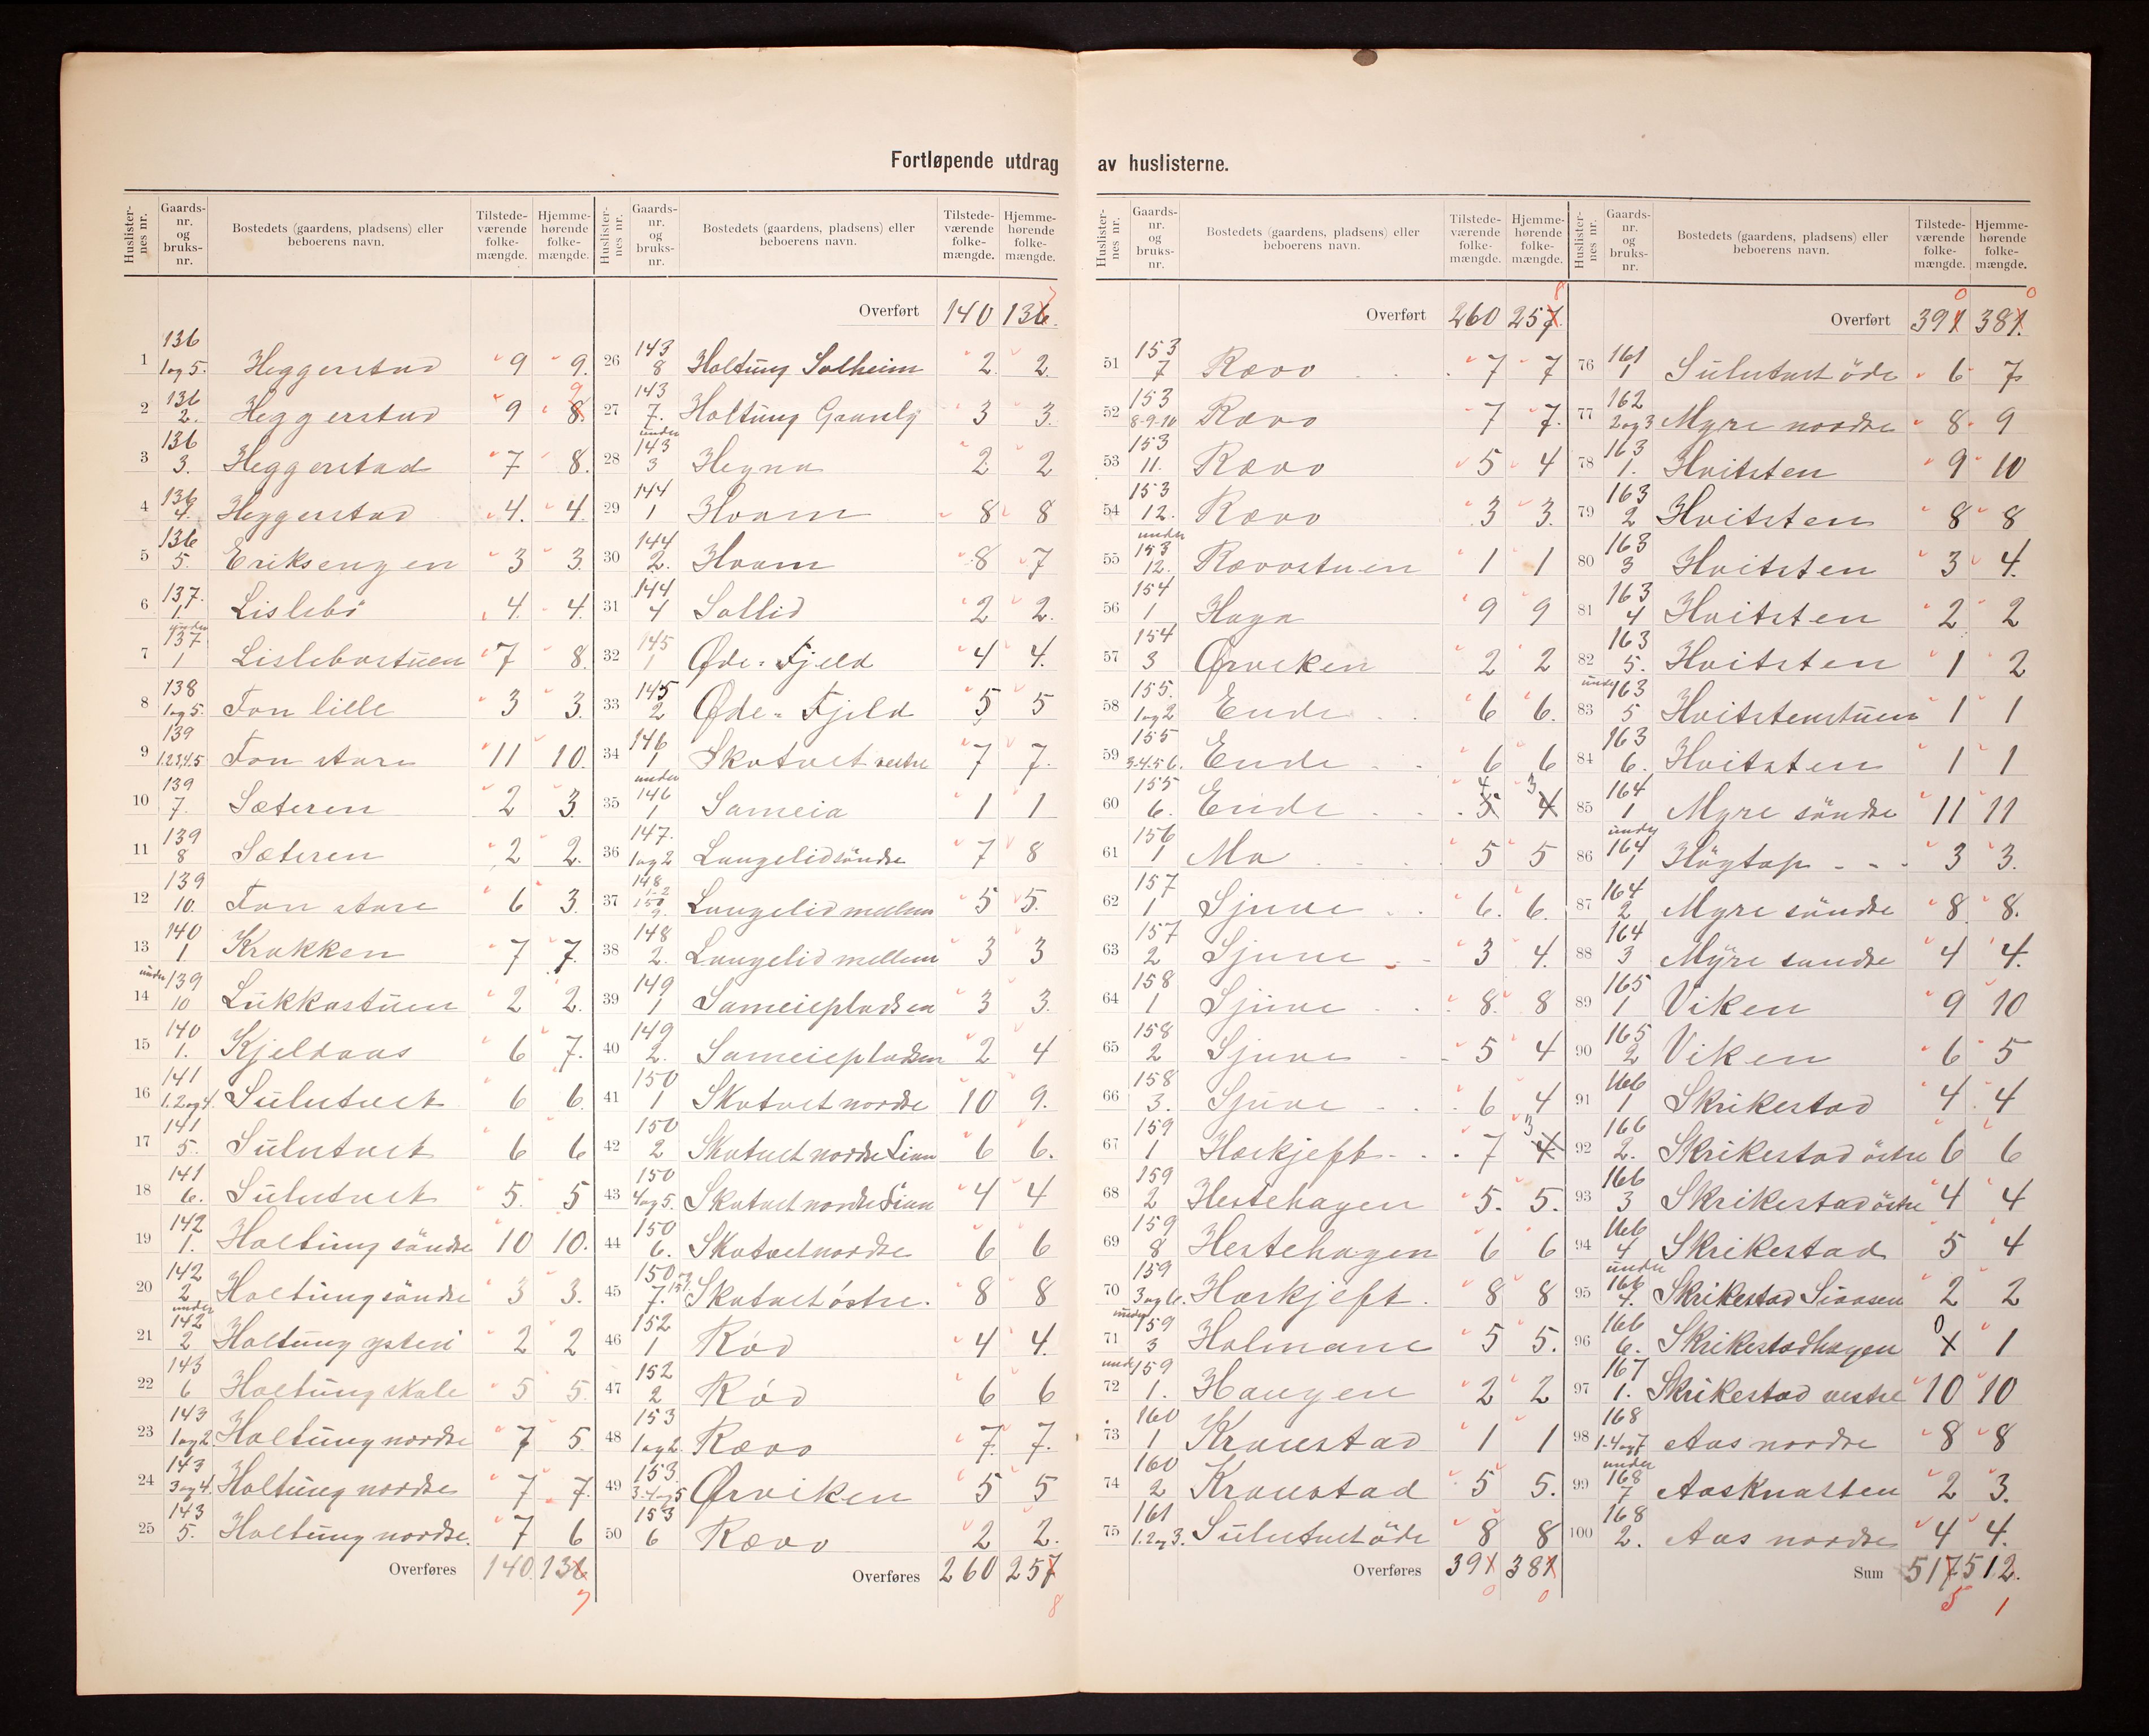 Fortløpende utdrag av huslisterne.
Huslisternes nr. Gaardsnr. og bruksnr. Bostedets (gaardens, pladsens) eller beboerens navn. Tilstedeværende folkemængde. Hjemmehørende folkemængde.
1 136 1 og 5. Heggerstad 9 9.
2 136 2. Heggerstad 9 8 9
3 136 3. Heggerstad 7 8.
4 136 4. Heggerstad 4. 4.
5 136 5. Eriksengen 3 3.
6 137. 1. Lislebö 4. 4.
7 under 137 1 Lislebostuen 7 8.
8 138 1 og 5. Fon lille 3 3.
9 139 1.2.3.4.5 Fon store 11 10.
10 139 7. Sæteren 2 3.
11 139 8 Sæteren 2 2.
12 139 10. Fon store 6 3.
13 140 1. Krakken 7 7.
14 under 139 10 Lukkastuen 2 2.
15 140 1. Kjeldaas 6 7.
16 141 1.2 og 4. Sulutvet 6 6.
17 141 5. Sulutvet 6 6
18 141 6. Sulutvet 5. 5
19 142 1. Holtung söndre 10 10.
20 142 2 Holtung söndre 3 3.
21 under 142 2 Holtung ysteri 2 2
22 143 6 Holtung skole 5 5.
23 143 1 og 2. Holtung nordre 7 5
24 143 3 og 4. Holtung nordre 7 7.
25 143 5. Holtung nordre. 7 6
Overføres 140. 136 7
Huslisternes nr. Gaardsnr. og bruksnr. Bostedets (gaardens, pladsens) eller beboerens navn. Tilstedeværende folkemængde. Hjemmehørende folkemængde.
Overført 140 136. 7
26 143 8 Holtung Solheim 2. 2.
27 143 7. Holtung 3 3.
28 under 143 3 Hegna 2 2
29 144 1 Hvam 8 8
30 144 2. Hvam 8 7
31 144 4 Sollid 2 2.
32 145 1 Øde-Fjeld 4 4.
33 145 2 Øde-Fjeld 5 5
34 146 1 Skatvet vestre 7 7.
35 under 146 1 Sameia 1 1
36 147. 1 og 2 Langelid söndre 7 8
37 148 1-2 150 9. Langelid mellem 5 5.
38 148 2. Langelid mellem 3 3
39 149 1 Sameiepladsen 3 3.
40 149 2. Sameiepladsen 2 4
41 150 1 Skatvet nordre 10 9.
42 150 2 Skatvet nordre 6 6.
43 150 4 og 5. Skatvet nordre 4 4
44 150 6. Skatvet nordre 6 6
45 150 7. Skatvet östre. 8 8
46 152 1 Röd 4 4.
47 152 2 Röd 6 6
48 153 1 og 2 Rævo 7. 7.
49 153. 3.4 og 5 Ørviken 5 5
50 153 6 Rævo 2 2.
Overføres 260 257 8
Huslisternes nr. Gaardsnr. og bruksnr. Bostedets (gaardens, pladsens) eller beboerens navn. Tilstedeværende folkemængde. Hjemmehørende folkemængde.
Overført 260 257 8
51 153 7 Rævo 7 7
52 153 8-9-10 Rævo 7 7.
53 153 11. Rævo 5 4
54 153 12. Rævo 3 3.
55 under 153 12. Rævostuen 1 1
56 154 1 Haga 9 9
57 154 3 Ørviken 2 2
58 155. 1 og 2 Ende 6 6.
59 155 3.4.5 6. Ende 6 6
60 155 6. Ende 5 4 4 3
61 156 1 Mo 5 5
62 157 1 Sjuve 6. 6.
63 157 2 Sjuve 3 4.
64 158 1 Sjuve 8. 8
65 158 2 Sjuve 5 4
66 158 3. Sjuve 6 4
67 159 1 Haskjeft 7 4 3
68 159 2 Hestehagen 5. 5.
69 159 8 Hestehagen 6 6
70 159 3 og 6. Haskjeft. 8 8
71 under 159 3 Holmane 5 5.
72 under 159 1. Haugen 2 2
73 160 1 Kravstad 1 1
74 160 2 Kravstad 5 5.
75 161 1.2 og 3. Sulutvet öde 8 8
Overføres 391 0 381 0
Huslisternes nr. Gaardsnr. og bruksnr. Bostedets (gaardens, pladsens) eller beboerens navn. Tilstedeværende folkemængde. Hjemmehørende folkemængde.
Overført 391 0 381. 0
76 161 1 Sulutvet öde 6 7
77 162 2 og 3 Myre nordre 8 9
78 163 1. Hvitsten 9 10
79 163 2 Hvitsten 8 8
80 163 3 Hvitsten 3 4.
81 163 4 Hvitsten 2 2
82 163 5. Hvitsten 1 2
83 under 163 5 Hvitstenstuen 1 1
84 163 6. Hvitsten 1 1
85 164 1 Myre söndre 11 11
86 under 164 1 Högtop 3 3.
87 164 2 Myre söndre 8 8.
88 164 3 Myre söndre 4 4.
89 165 1 Viken 9 10
90 165 2 Viken 6 5
91 166 1 Skrikestad 4 4
92 166 2. Skrikestad östre 6 6
93 166 3 Skrikestad östre 4 4
94 166 4 Skrikestad 5 4
95 under 166 4. Skrikestad 2 2
96 166 6. Skrikestadhagen 0 1
97 167 1. Skrikestad vestre 10 10
98 168 1-4 og 7 Aas nordre 8 8
99 under 168 7 Aasknatten 2 3.
100 168 2. Aas nordre 4 4.
Sum 517 5 512. 1